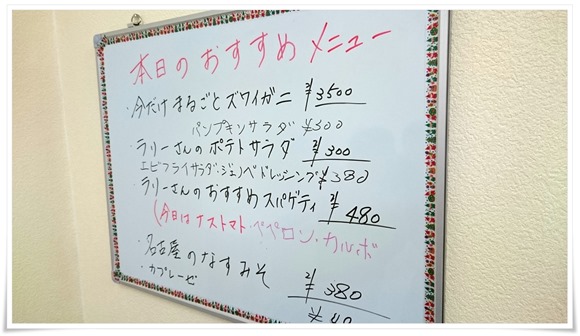 本日のおすすめメニュー
・今だけまるごとズワイガニ ¥3500
パンプキンサラダ ¥300
・ラリーさんのポテトサラダ ¥300
エビフライサラダ・ジェノベドレッシング ¥380
・ラリーさんのおすすめスパゲティ ¥480
(今日はナストマト・ペペロン・カルボ
・名古屋のなすみそ ¥380
・カプレーゼ